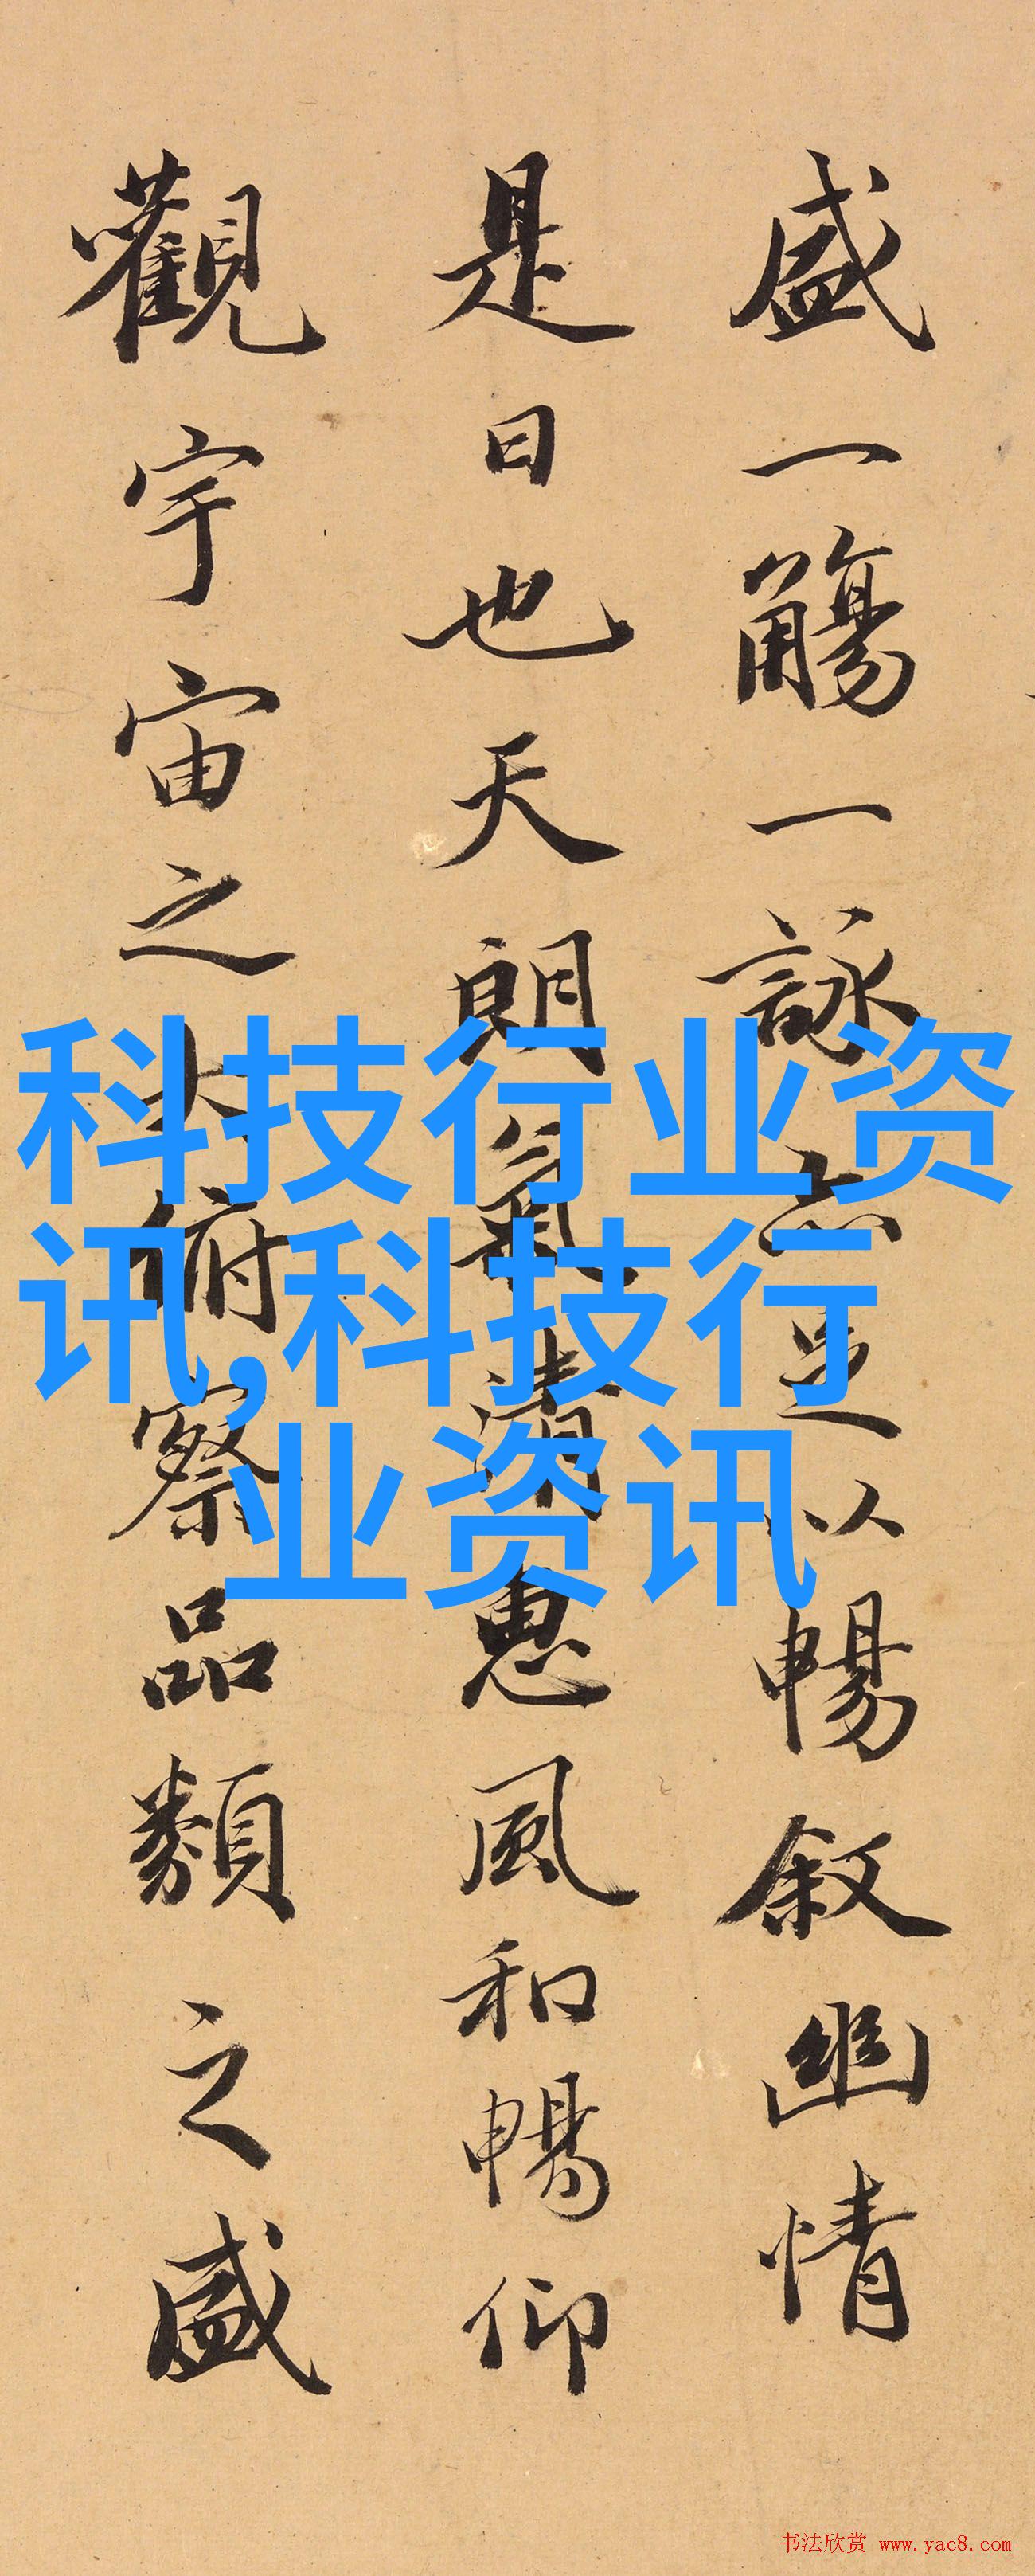 盛一觴一詠亦足以暢叙幽情
是日也天朗氣清惠風和暢仰
觀宇宙之大俯察品類之盛
科技行业资
讯,科技行
业资讯
书法欣赏 www.yac8.com